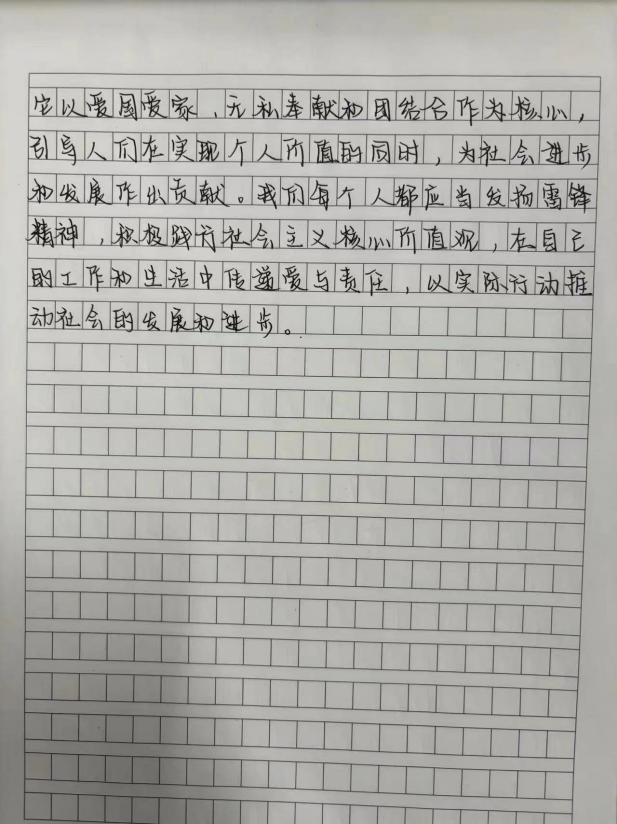 它以爱国爱家、无私奉献和团结合作为核心，
引导人们在实现个人价值的同时，为社会进步
和发展作出贡献。我们每个人都应当发扬雷锋
精神，积极践行社会主义核心价值观，在自己
的工作和生活中传递爱与责任，以实际行动推
动社会的发展和进步。